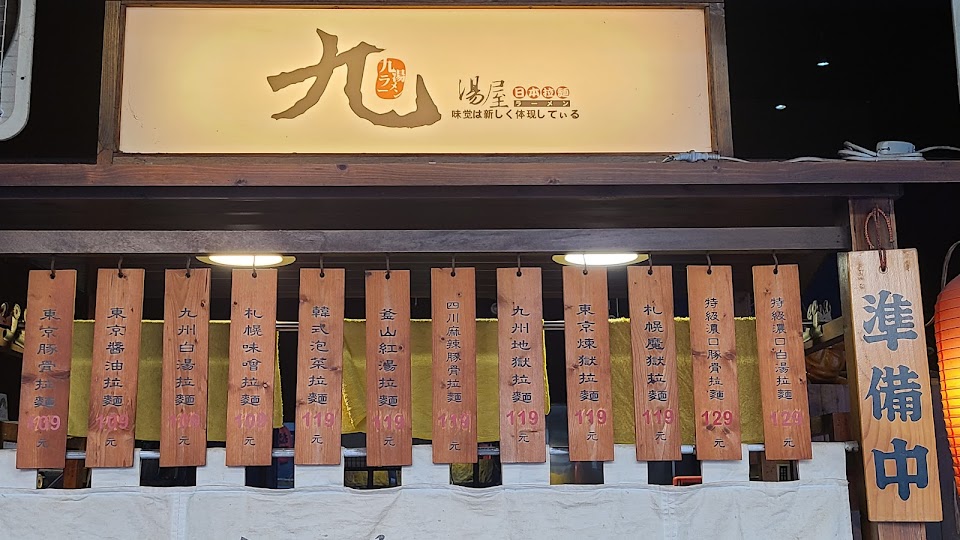 九
九湯
ラーメン
湯屋
日本拉麵
ラーメン
味覚は新しく体現してぃる
東京豚骨拉麵
109元
東京醬油拉麵
109元
九州白湯拉麵
109元
札幌味噌拉麵
109元
韓式泡菜拉麵
119元
釜山紅湯拉麵
119元
四川麻辣豚骨拉麵
119元
九州地獄拉麵
119元
東京煉獄拉麵
119元
札幌魔獄拉麵
119元
特級濃口豚骨拉麵
129元
特級濃口白湯拉麵
129元
準備中